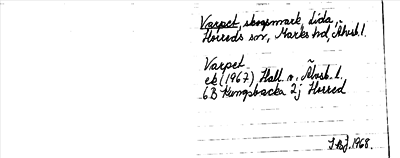 Varpet, skogsmark, Lida,
Horreds sn, Marks hd, Älvsb. l.
Varpet
ek (1967) Hall. o. Älvsb. l.
6B Kungsbacka 2j Horred
1968.